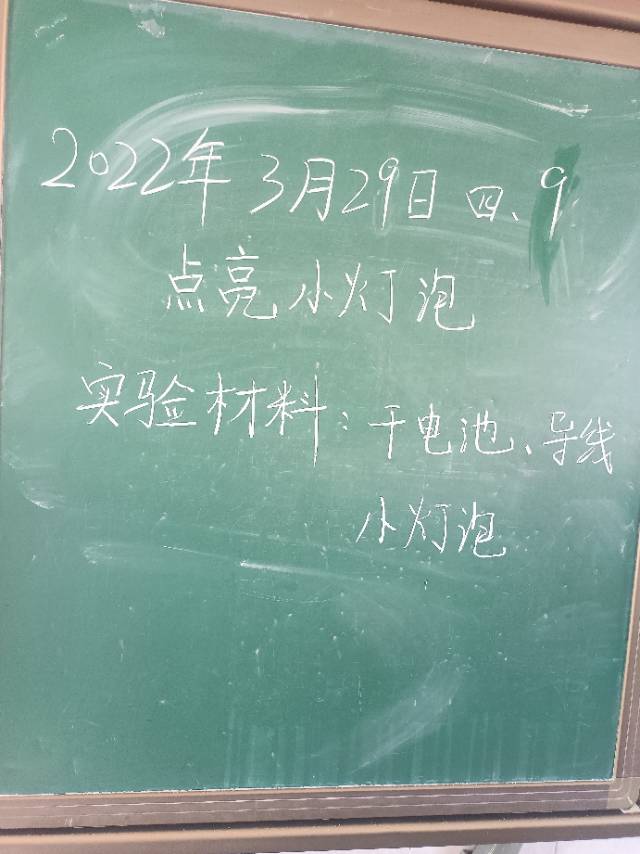 2022年3月29日 四、9
点亮小灯泡
实验材料：干电池、导线
小灯泡